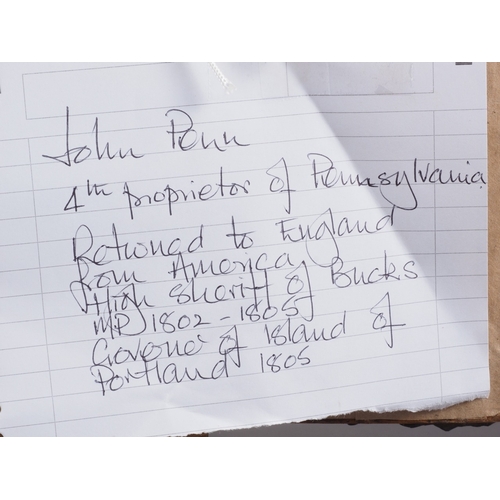 John Penn
4th proprietor of Pennsylvania
Retruned to England
from America
High Sheriff of Bucks
MP 1802 - 1805
Govenor of Island of
Portland 1805